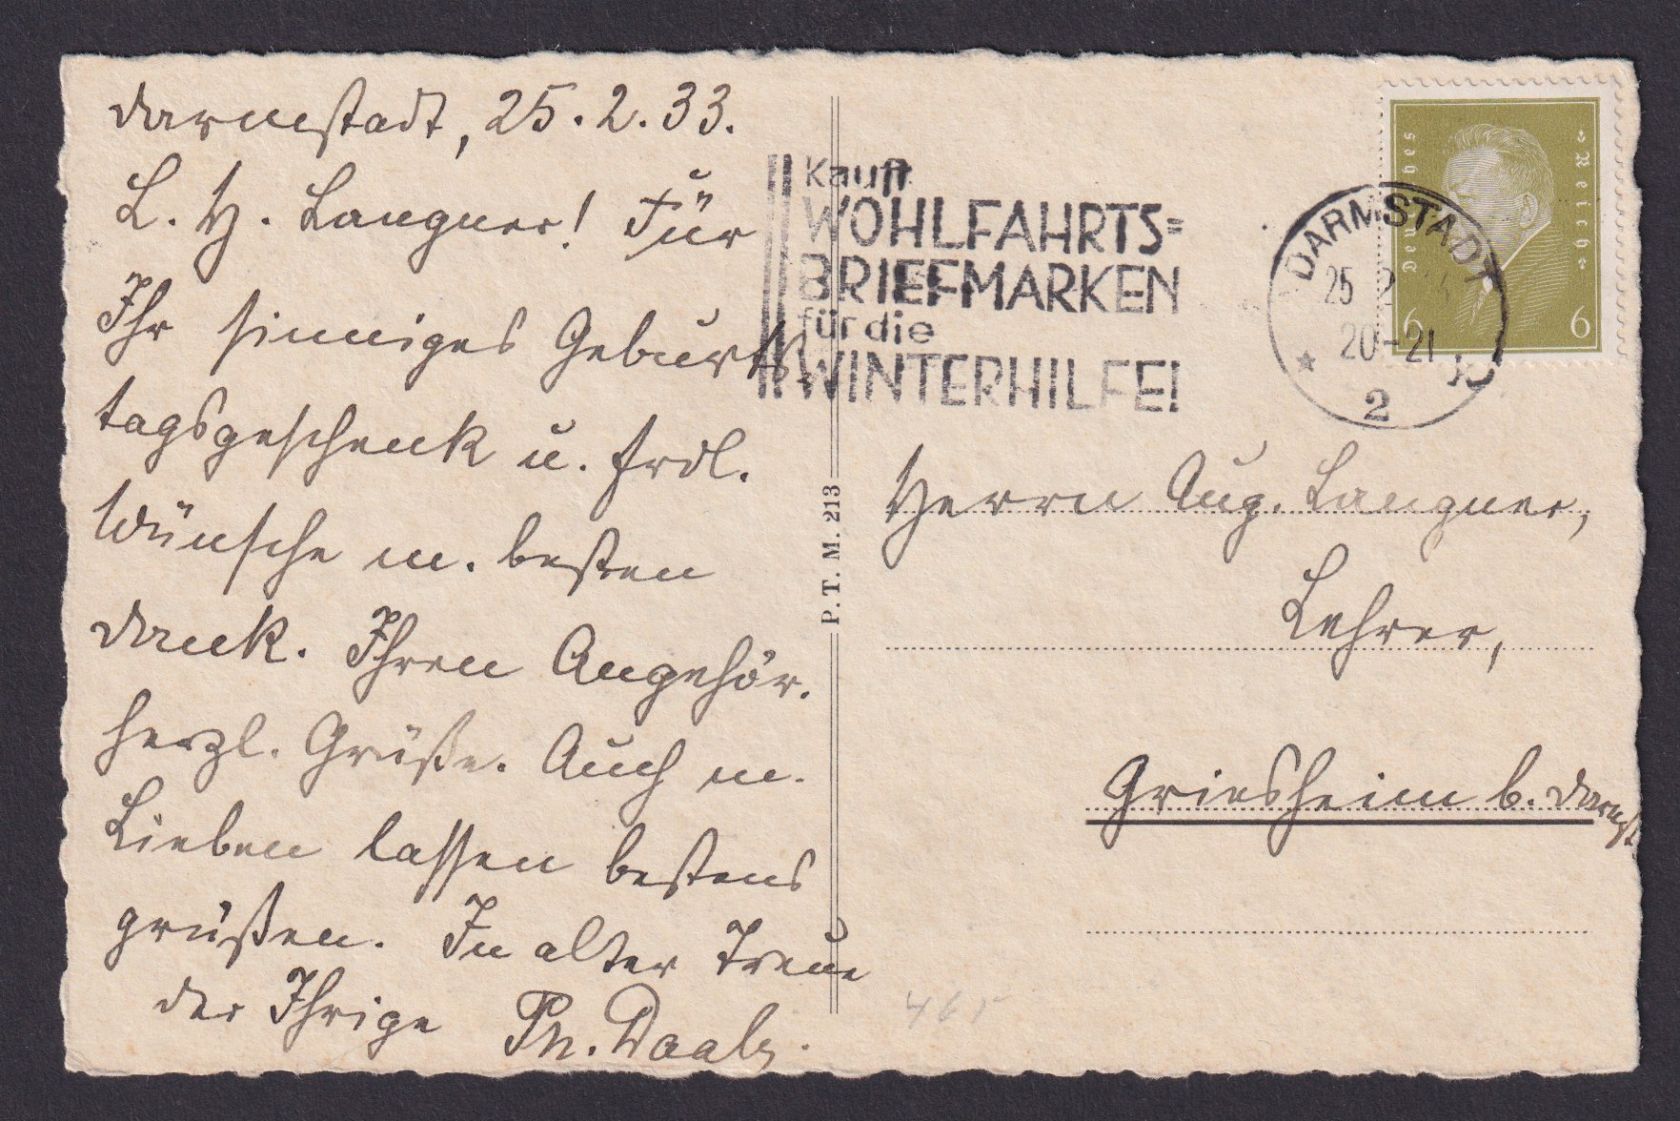 Darmstadt, 25.2.33.
L. H. Langner! Für
Ihr sinniges Geburts-
tagsgeschenk u. frdl.
Wünsche m. besten
Dank. Ihren Angehör.
herzl. Grüße. Auch m.
Lieben lassen bestens
grüßen. In alter Treue
der Ihrige Ph.
P. T. M. 213
Kauft
WOHLFAHRTS=
BRIEFMARKEN
für die
WINTERHILFE!
DARMSTADT
25 2
20-21
2
Deutsches Reich
6 6
Herrn Aug. Langner,
Lehrer,
Griesheim b. Darmst.